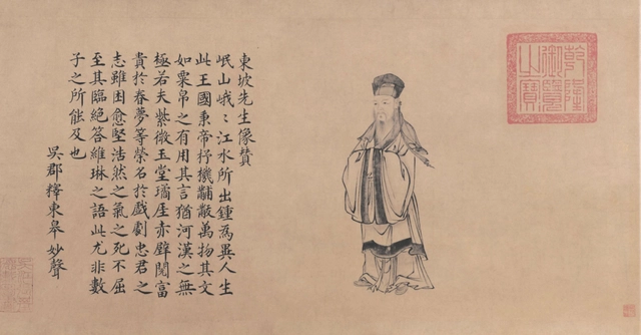 乾隆
御覽
之寶
東坡先生像贊
岷山峩〻江水所出鍾為異人生
此王國秉帝杼機黼黻萬物其文
如粟帛之有用其言猶河漢之無
極若夫紫微玉堂瓊厓赤壁閱富
貴於春夢等榮名於戲劇忠君之
志雖困愈堅浩然之氣之死不屈
至其臨絕答維琳之語此尤非數
子之所能及也
吳郡釋東皋妙聲